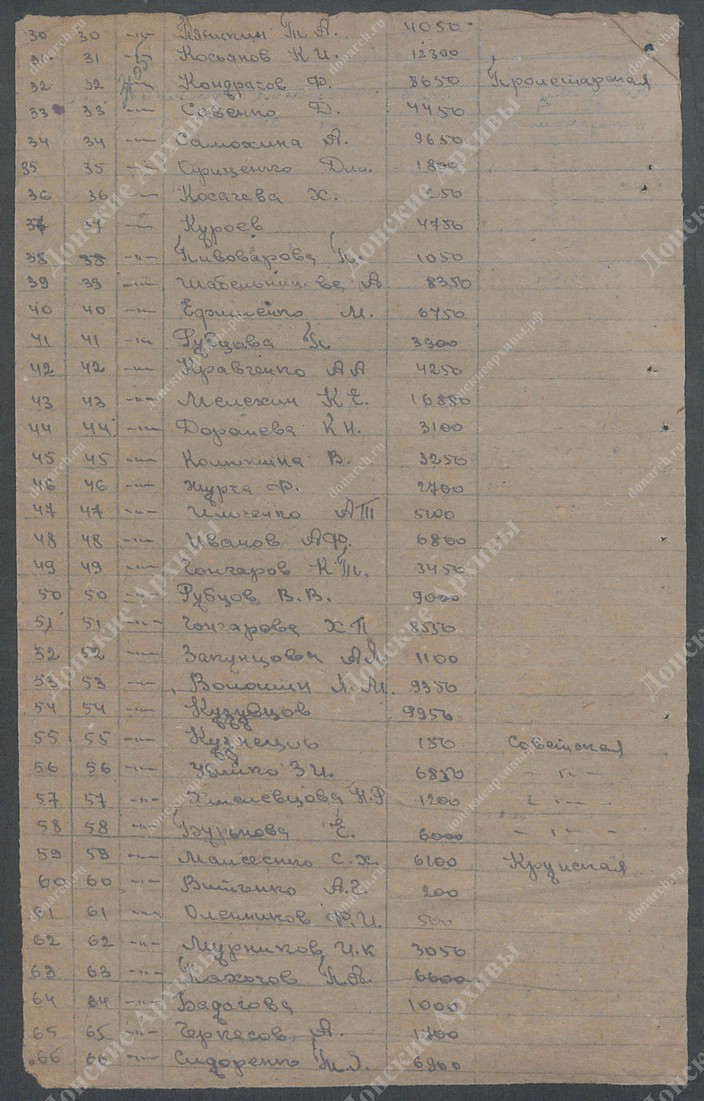 30 30 -"- Т А. 4050
31 31 -"- Косьянов К И. 12300
32 32 -"- Кондрасов Ф. 8650 Пролетарская
33 33 -"- Савенко Д. 4450
34 34 -"- Самохина А. 9650
35 35 -"- Ориценко Дм. 1800
36 36 -"- Косачева Х. 250
37 37 -"- Куроев 4750
38 38 -"- Пивоварова П. 1050
39 39 -"- Шабельникова А 8350
40 40 -"- Ефименко М. 6750
41 41 -"- Рубцова П. 3900
42 42 -"- Кравченко А А 4250
43 43 -"- Мелехин К Е. 16880
44 44 -"- Доранева К И. 3100
45 45 -"- В. 3250
46 46 -"- Журга Ф. 2700
47 47 -"- Ильченко А П 5200
48 48 -"- Иванов А Ф. 6800
49 49 -"- Гончаров К П. 3450
50 50 -"- Рубцов В. В. 9000
51 51 -"- Гончарова Х П 8550
52 52 -"- Закунцова А Я. 1100
53 53 -"- Волошин Я. М. 9350
54 54 -"- 9950
55 55 -"- Кузнецов 150 Советская
56 56 -"- Убийко З И. 6850 -"-
57 57 -"- Хмелевцова Н. Р 1200 -"-
58 58 -"- Бурькова Е. 6000 -"-
59 59 -"- С. Х. 6100
60 60 -"- Витченко А. Г. 200
61 61 -"- Олейников Ф. И. 500
62 62 -"- Мурников И. К 3050
63 63 -"- П. А. 6600
64 64 -"- Бадагова 1000
65 65 -"- Черкесов А. 1700
66 66 -"- Сидоренко 6900
Донские Архивы
donarch.ru
донскиеархивы.рф